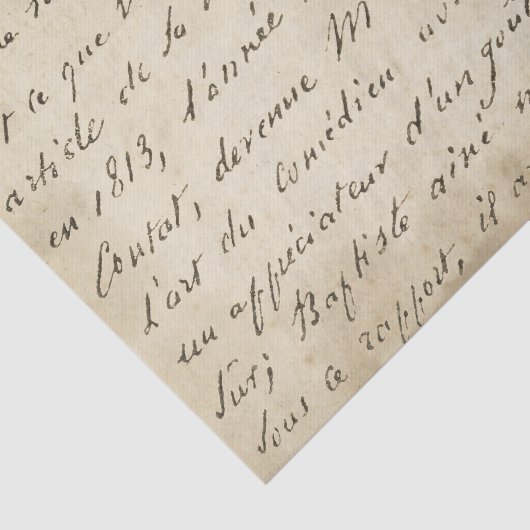 t ce que
artiste de la
en 1813, l'année
Contat, devenue M
l'art du comédien av
un appréciateur d'un goû
sûr; Baptiste ainé
sous ce rapport, il a